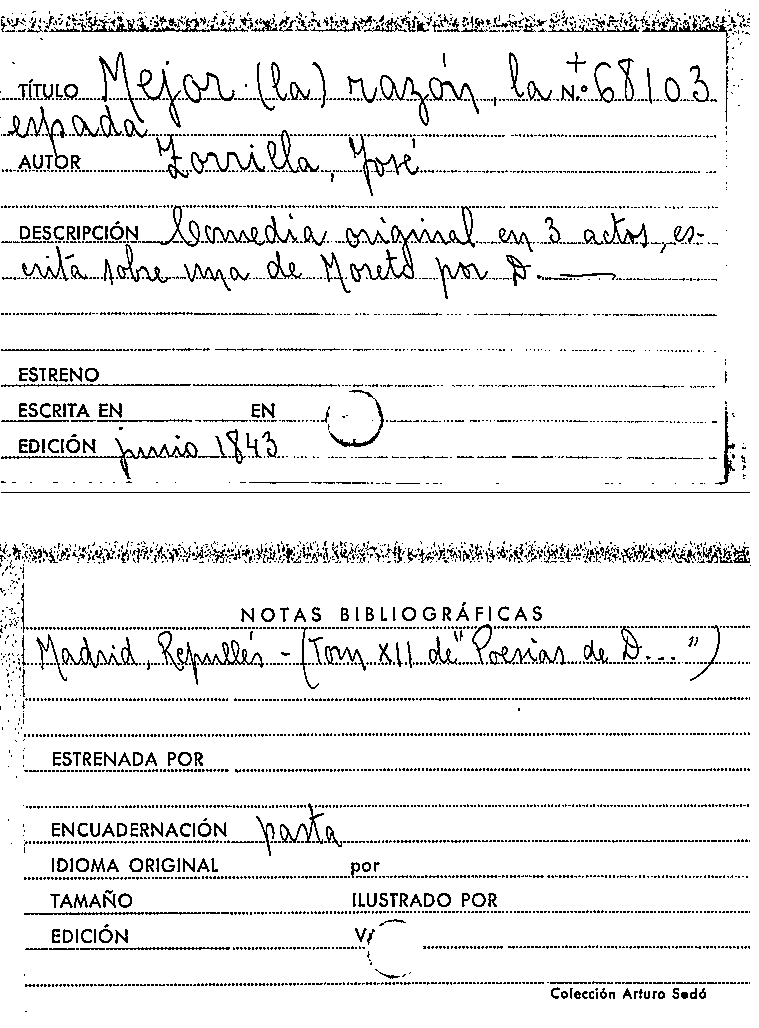 TÍTULO Mejor (la) razón, la N.º + 68103
espada
AUTOR Zorrilla, José
DESCRIPCIÓN Comedia original en 3 actos, es-
crita sobre una de Moreto por D. ——
ESTRENO
ESCRITA EN EN
EDICIÓN junio 1843
NOTAS BIBLIOGRÁFICAS
Madrid, Repullés - (Tom XII de "Poesías de D...")
ESTRENADA POR
ENCUADERNACIÓN pasta
IDIOMA ORIGINAL por
TAMAÑO ILUSTRADO POR
EDICIÓN V/
Colección Arturo Sedó